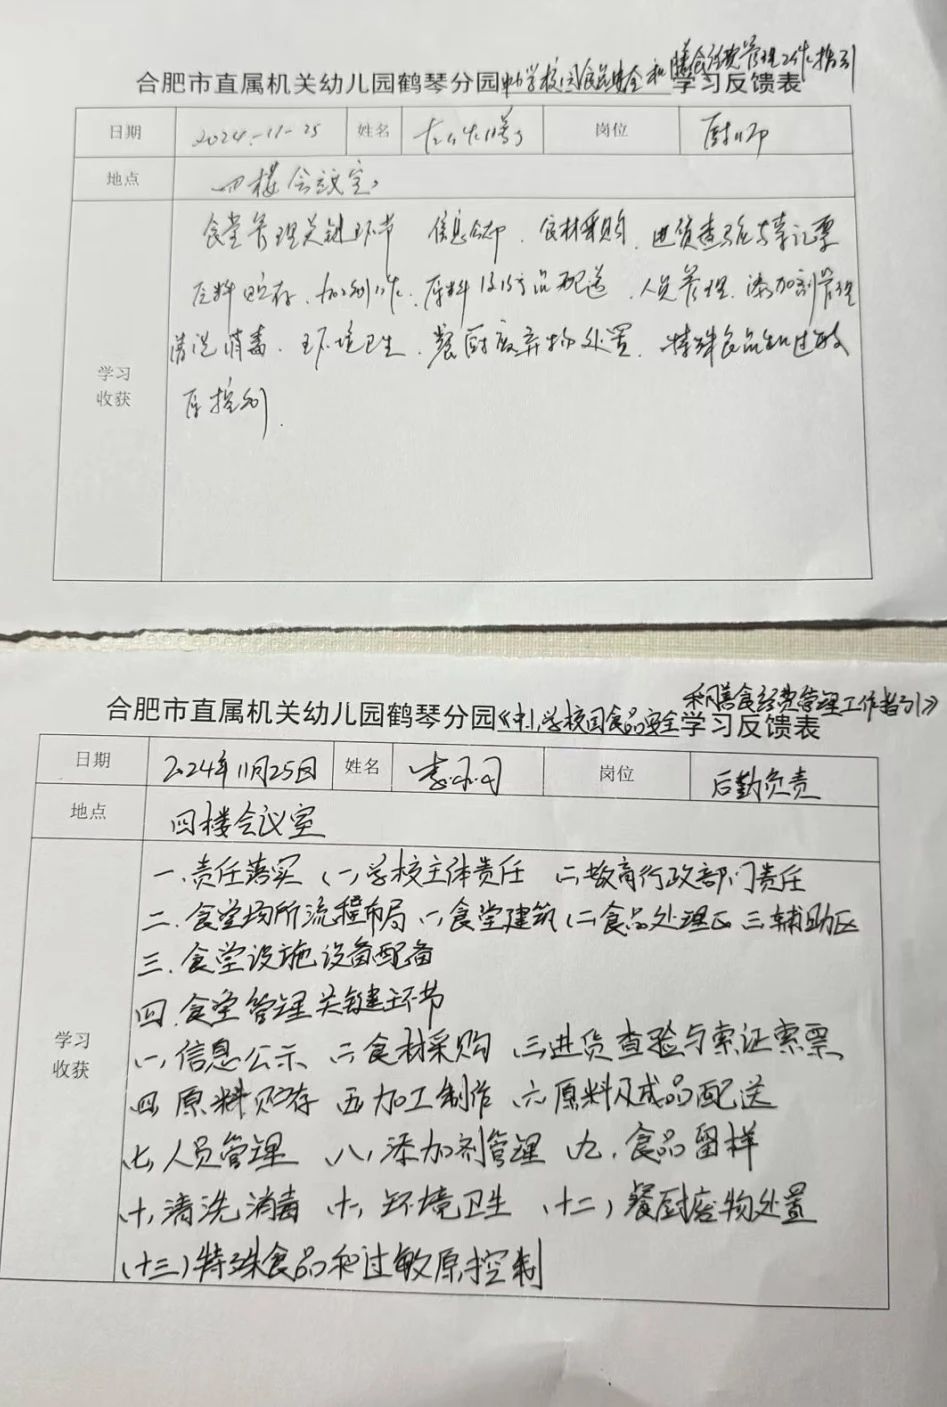 和膳食经费管理工作指引
合肥市直属机关幼儿园鹤琴分园中小学校园食品安全学习反馈表
日期 2024-11-25 姓名 岗位 厨师
地点 四楼会议室
食堂管理关键环节 信息公示、食材采购、进货查验与索证票
原料贮存、加工制作、原料及成品配送、人员管理、添加剂管理
清洗消毒、环境卫生、餐厨废弃物处置、特殊食品和过敏
原控制.
学习
收获
和膳食经费管理工作指引》
合肥市直属机关幼儿园鹤琴分园《中小学校园食品安全学习反馈表
日期 2024年11月25日 姓名 岗位 后勤负责
地点 四楼会议室
一.责任落实 (一)学校主体责任 (二)教育行政部门责任
二.食堂场所流程布局 (一)食堂建筑 (二)食品处理区 (三)辅助区
三.食堂设施设备配备
四.食堂管理关键环节
(一)信息公示 (二)食材采购 (三)进货查验与索证索票
(四)原料贮存 (五)加工制作 (六)原料及成品配送
(七)人员管理 (八)添加剂管理 (九)食品留样
(十)清洗消毒 (十一)环境卫生 (十二)餐厨废物处置
(十三)特殊食品和过敏原控制
学习
收获